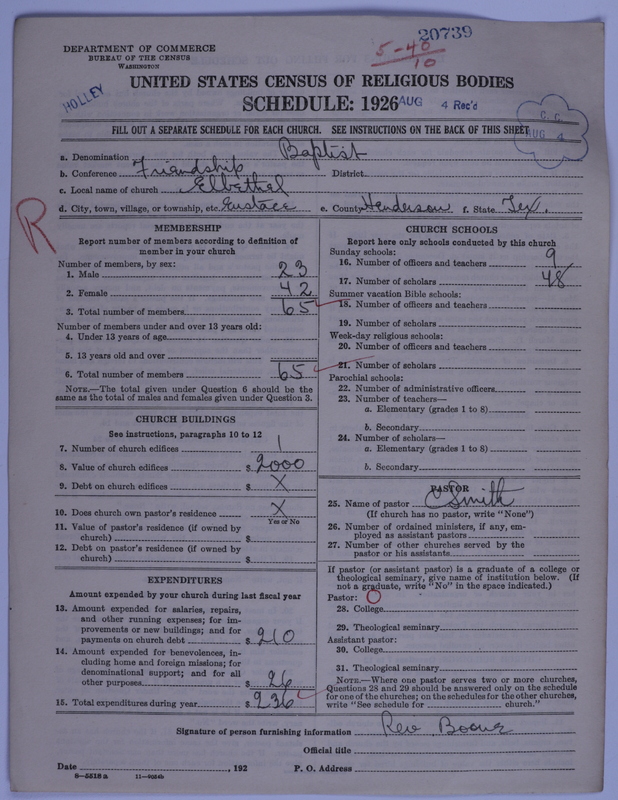 20739
5-40
10
DEPARTMENT OF COMMERCE
BUREAU OF THE CENSUS
WASHINGTON
HOLLEY
UNITED STATES CENSUS OF RELIGIOUS BODIES
SCHEDULE: 1926
AUG 4 Rec'd
C. C.
AUG 4
FILL OUT A SEPARATE SCHEDULE FOR EACH CHURCH. SEE INSTRUCTIONS ON THE BACK OF THIS SHEET
a. Denomination Baptist
b. Conference Friendship District
c. Local name of church Elbethel
d. City, town, village, or township, etc. Eustace e. County Henderson f. State Tex.
R
MEMBERSHIP
Report number of members according to definition of
member in your church
Number of members, by sex:
1. Male 23
2. Female 42
3. Total number of members 65
Number of members under and over 13 years old:
4. Under 13 years of age
5. 13 years old and over
6. Total number of members 65
NOTE.—The total given under Question 6 should be the
same as the total of males and females given under Question 3.
CHURCH BUILDINGS
See instructions, paragraphs 10 to 12
7. Number of church edifices 1
8. Value of church edifices $ 2000
9. Debt on church edifices $ X
10. Does church own pastor's residence X
Yes or No
11. Value of pastor's residence (if owned by
church) $
12. Debt on pastor's residence (if owned by
church) $
EXPENDITURES
Amount expended by your church during last fiscal year
13. Amount expended for salaries, repairs,
and other running expenses; for im-
provements or new buildings; and for
payments on church debt $ 210
14. Amount expended for benevolences, in-
cluding home and foreign missions; for
denominational support; and for all
other purposes $ 26
15. Total expenditures during year $ 236
CHURCH SCHOOLS
Report here only schools conducted by this church
Sunday schools:
16. Number of officers and teachers 9
17. Number of scholars 48
Summer vacation Bible schools:
18. Number of officers and teachers
19. Number of scholars
Week-day religious schools:
20. Number of officers and teachers
21. Number of scholars
Parochial schools:
22. Number of administrative officers
23. Number of teachers—
a. Elementary (grades 1 to 8)
b. Secondary
24. Number of scholars—
a. Elementary (grades 1 to 8)
b. Secondary
PASTOR
25. Name of pastor C Smith
(If church has no pastor, write "None")
26. Number of ordained ministers, if any, em-
ployed as assistant pastors
27. Number of other churches served by the
pastor or his assistants
If pastor (or assistant pastor) is a graduate of a college or
theological seminary, give name of institution below. (If
not a graduate, write "No" in the space indicated.)
Pastor: O
28. College
29. Theological seminary
Assistant pastor:
30. College
31. Theological seminary
NOTE.—Where one pastor serves two or more churches,
Questions 28 and 29 should be answered only on the schedule
for one of the churches; on the schedules for the other churches,
write "See schedule for church."
Signature of person furnishing information Rev
Official title
Date , 192 P. O. Address
8—5518 a 11—9054b